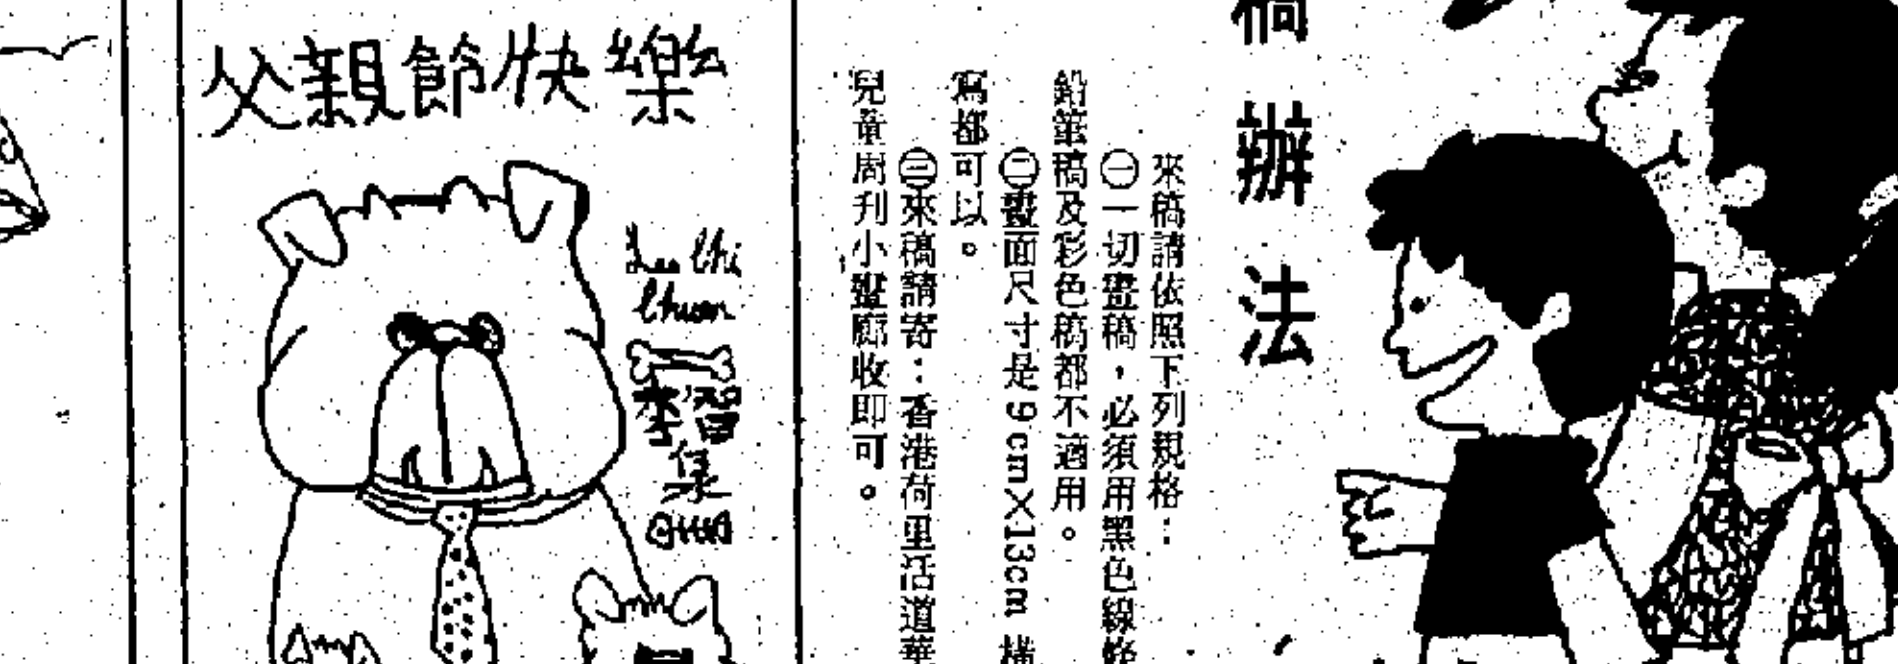 父親節快樂
稿辦法
來稿請依照下列規格：
㊀一切畫稿，必須用黑色線條
鉛筆稿及彩色稿都不適用。
㊁畫面尺寸是9cm×13cm橫
寫都可以。
㊂來稿請寄：香港荷里活道華
兒童周刊小畫廊收即可。